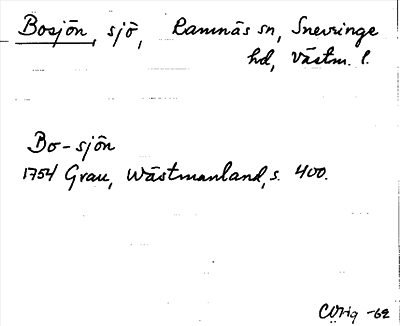 Bosjön, sjö, Ramnäs sn, Snevringe
hd, Västm. l.
Bo-sjön
1754 Grau, Wästmanland, s. 400.
-62